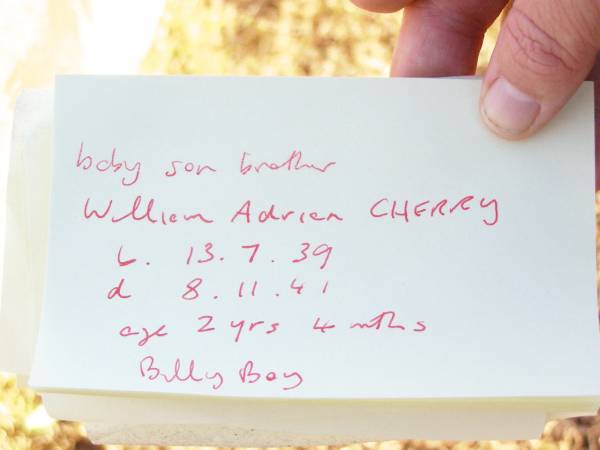 baby son brother
William Adrian CHERRY
b. 13.7.39
d 8.11.41
age 2 yrs 4 mths
Billy Boy